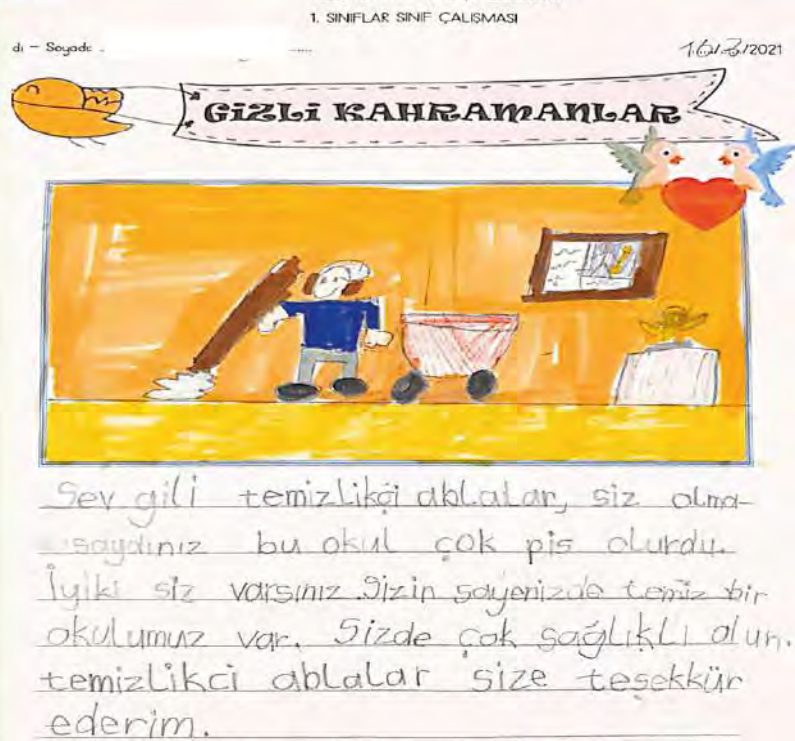 1. SINIFLAR SINIF ÇALIŞMASI
dı - Soyadı
16/3/2021
GİZLİ KAHRAMANLAR
Sevgili temizlikçi ablalar, siz olma-
saydınız bu okul çok pis olurdu.
İyiki siz varsınız. Sizin sayenizde temiz bir
okulumuz var. Sizde çok sağlıklı olun.
temizlikci ablalar size teşekkür
ederim.